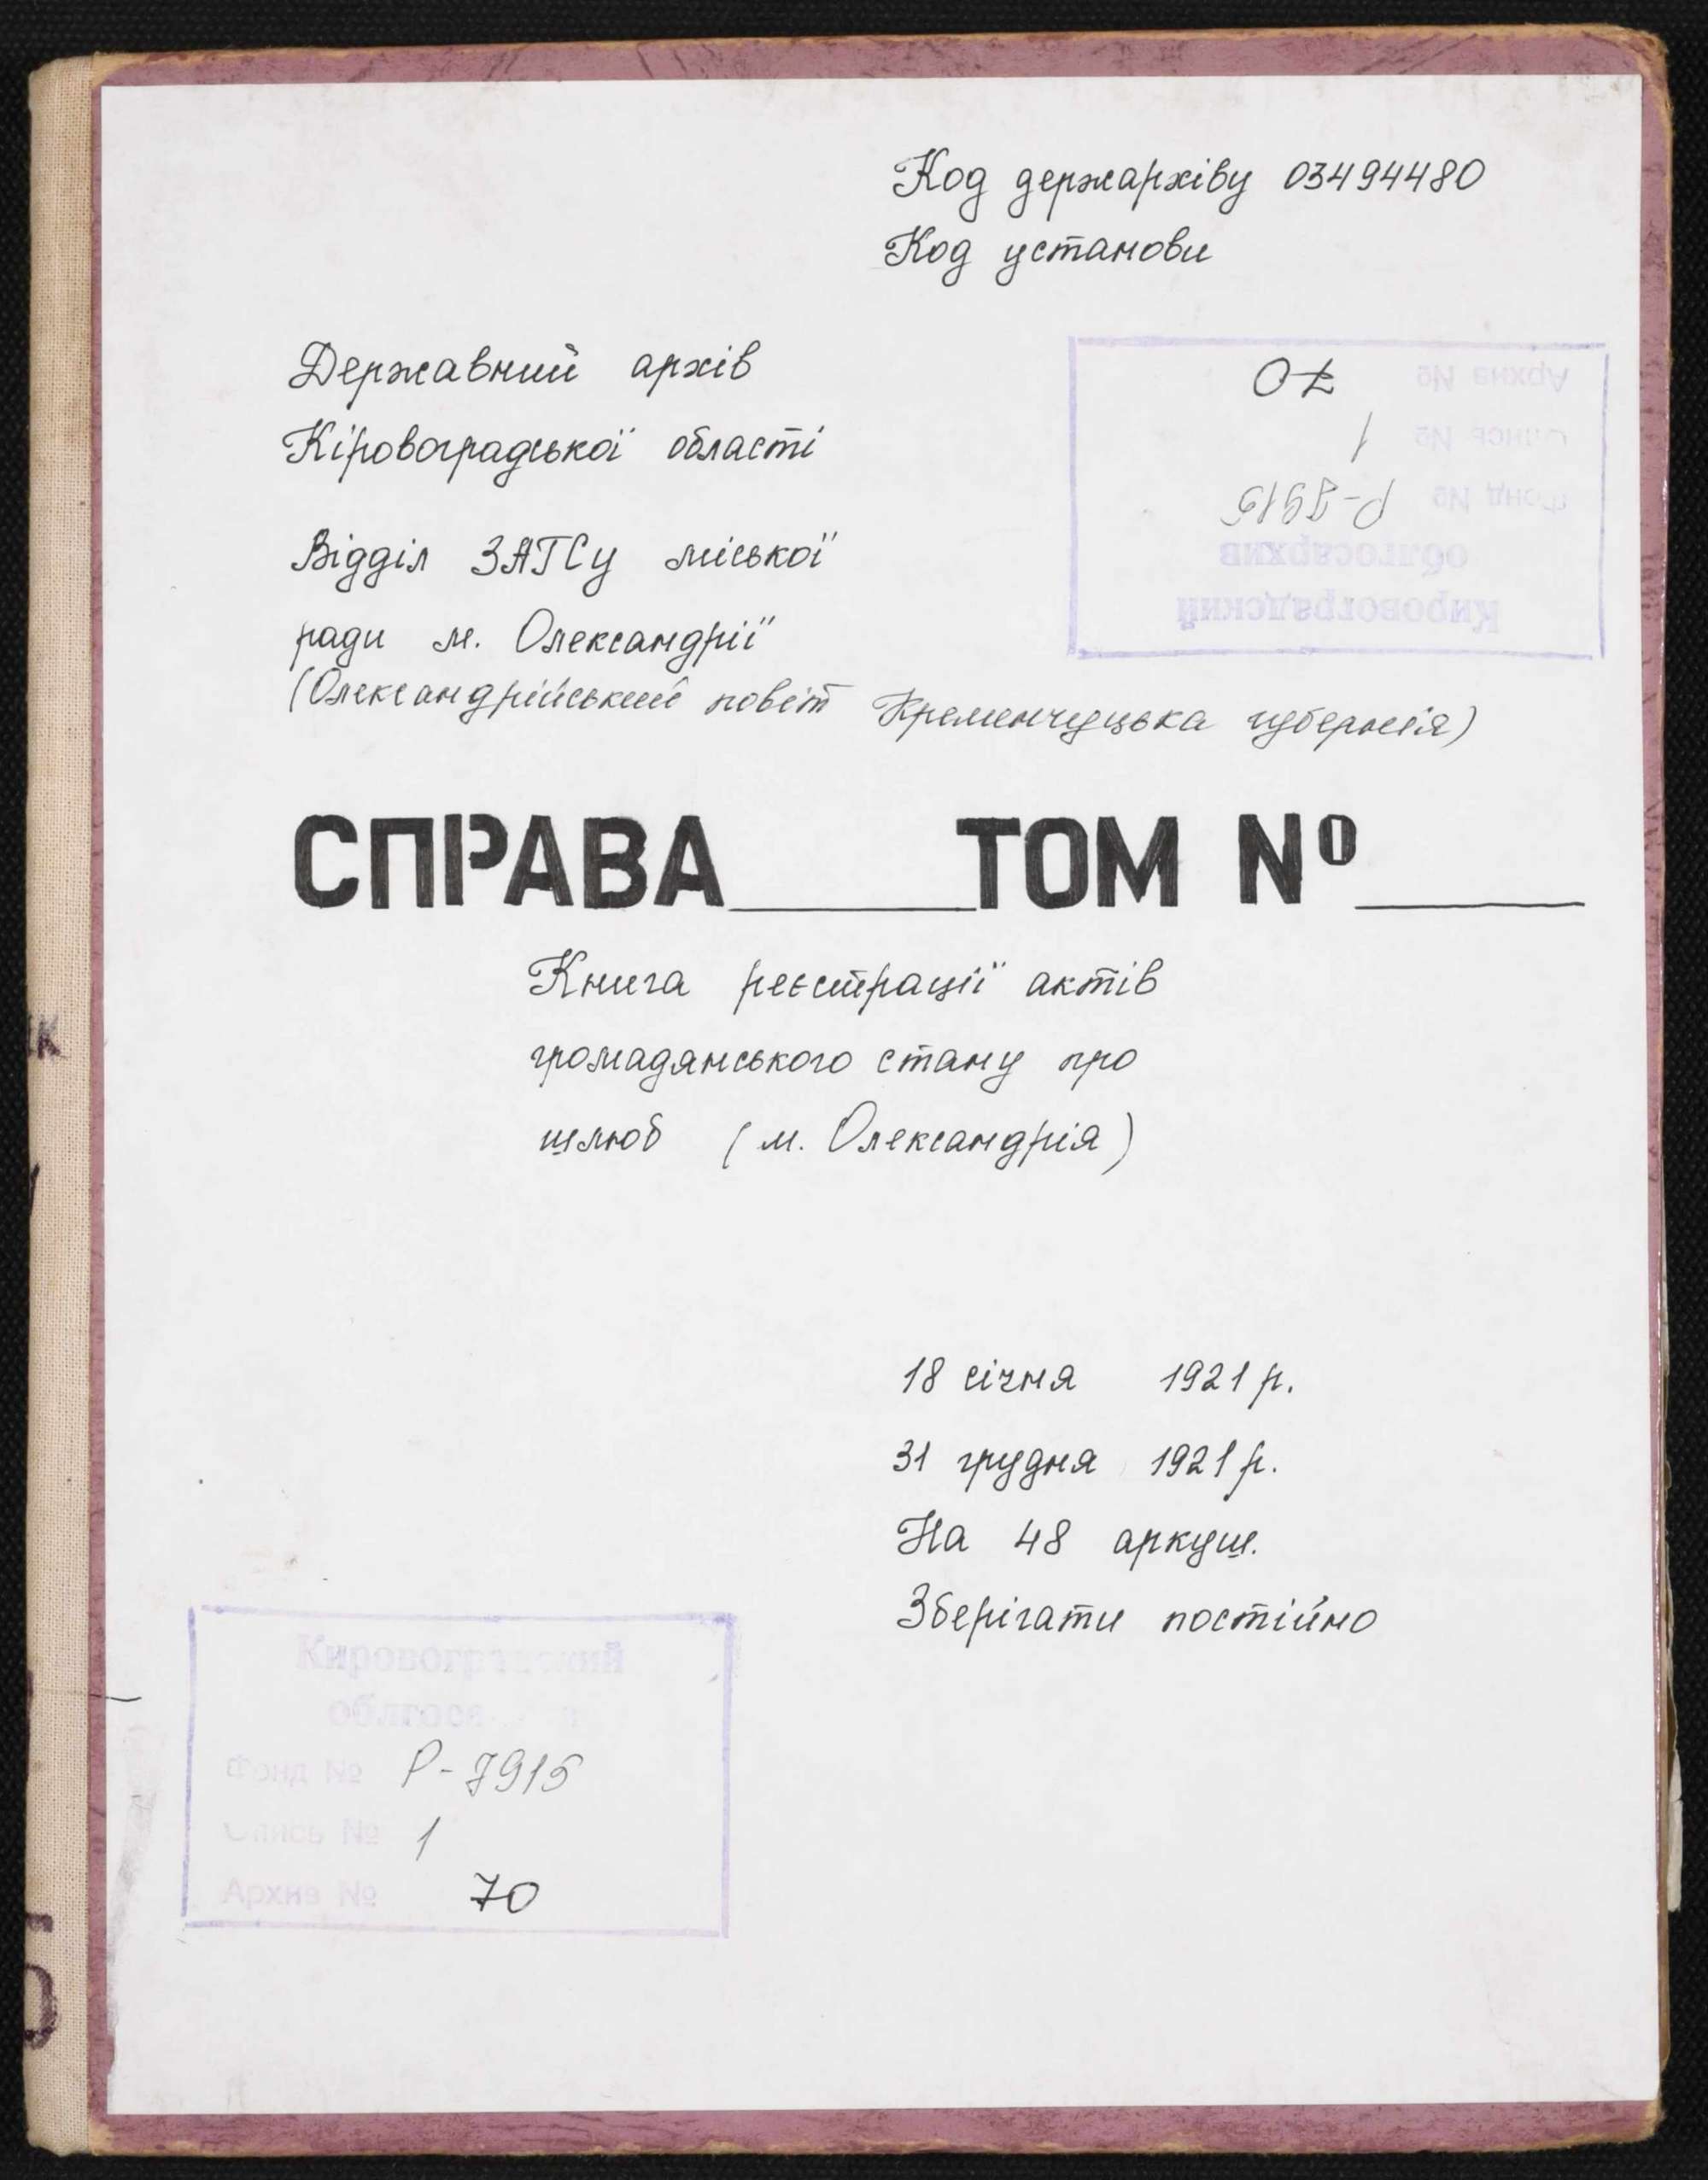 Код держархіву 03494480
Код установи
Державний архів
Кіровоградської області
Архив № 70
Опись № 1
Фонд № Р-7915
облгосархив
Кировоградский
Відділ ЗАГСу міської
ради м. Олександрії
(Олександрійський повіт Кременчуцька губернія)
СПРАВА ТОМ №
Книга реєстрації актів
громадянського стану про
шлюб (м. Олександрія)
18 січня 1921 р.
31 грудня 1921 р.
На 48 аркуш.
Зберігати постійно
Кировоградский
облгосархив
Фонд № Р-7915
Опись № 1
Архив № 70